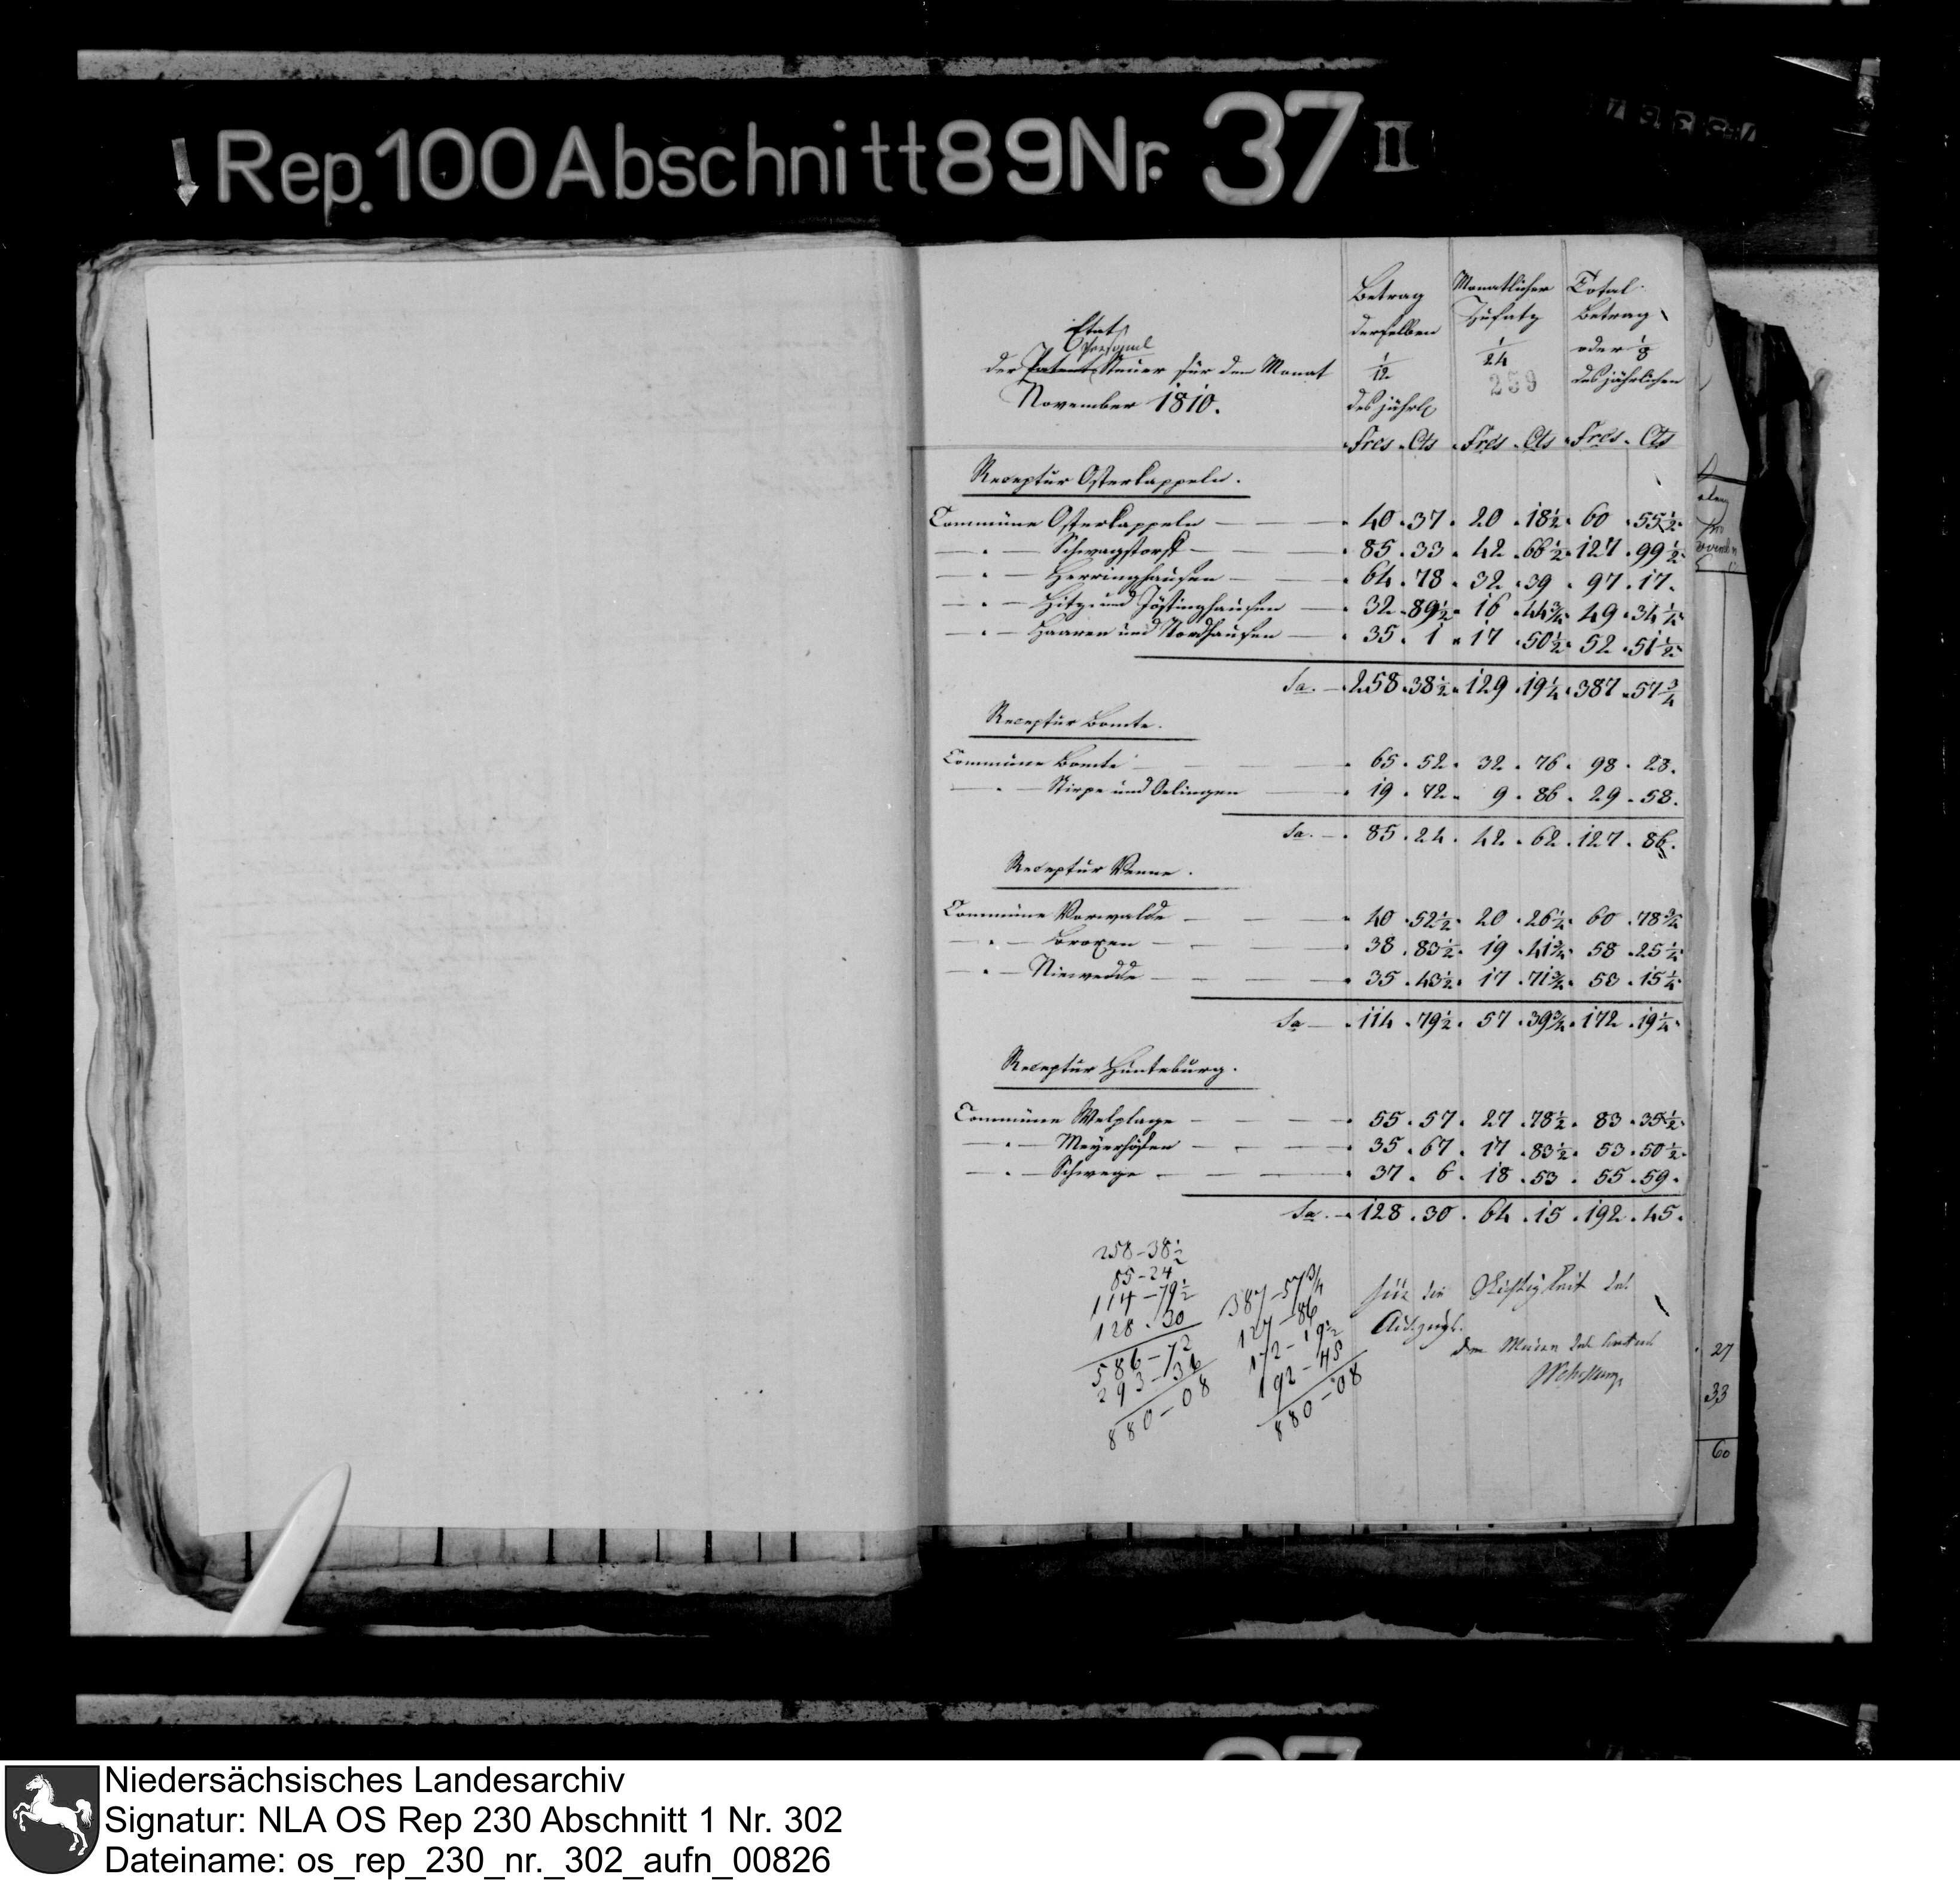 Rep. 100 Abschnitt 89 Nr. 37 II
Etat
Personal
der Patent Steuer für den Monat
November 1810.
Betrag
derselben
1/12
des jährl
Monatlicher
Zusatz
1/24
259
Total
Betrag
oder 1/8
des jährlichen
Frcs. Cts Frcs. Cts Frcs. Cts
Receptur Osterkappeln.
Commüne Osterkappeln — 40. 37. 20. 18½. 60. 55½.
— " — Schwagstorff — 85. 33. 42. 66½. 127. 99½.
— " — Herringhausen — 64. 78. 32. 39. 97. 17.
— " — Hitz und Jöstinghausen — 32. 89½. 16. 44¾. 49. 34¼.
— " — Haaren und Nordhausen — 35. 1. 17. 50½. 52. 51½.
Sa. — 258. 38½. 129. 19¼. 387. 57¾
Receptur Bomte.
Commüne Bomte — 65. 52. 32. 76. 98. 28.
— " — Stirpe und Oelingen — 19. 72. 9. 86. 29. 58.
Sa. — 85. 24. 42. 62. 127. 86.
Receptur Venne.
Commüne Vorwalde — 40. 52½. 20. 26¼. 60. 78¾
— " — Broxen — 38. 83½. 19. 41¾. 58. 25¼
— " — Niewedde — 35. 43½. 17. 71¾. 53. 15¼
Sa — 114. 79½. 57. 39¾. 172. 19¼.
Receptur Hünteburg.
Commüne Welplage — 55. 57. 27. 78½. 83. 35½.
— " — Meyerhöfen — 35. 67. 17. 83½. 53. 50½.
— " — Schwege — 37. 6. 18. 53. 55. 59.
Sa. — 128. 30. 64. 15. 192. 45.
258-38½
85-24
114-79½
128-30
586-72
293-36
880-08
387-57¾
127-86
172-19½
192-45
880-08
für die Richtigkeit des
Auszugs.
Der Maire des
27
33
60
Niedersächsisches Landesarchiv
Signatur: NLA OS Rep 230 Abschnitt 1 Nr. 302
Dateiname: os_rep_230_nr._302_aufn_00826